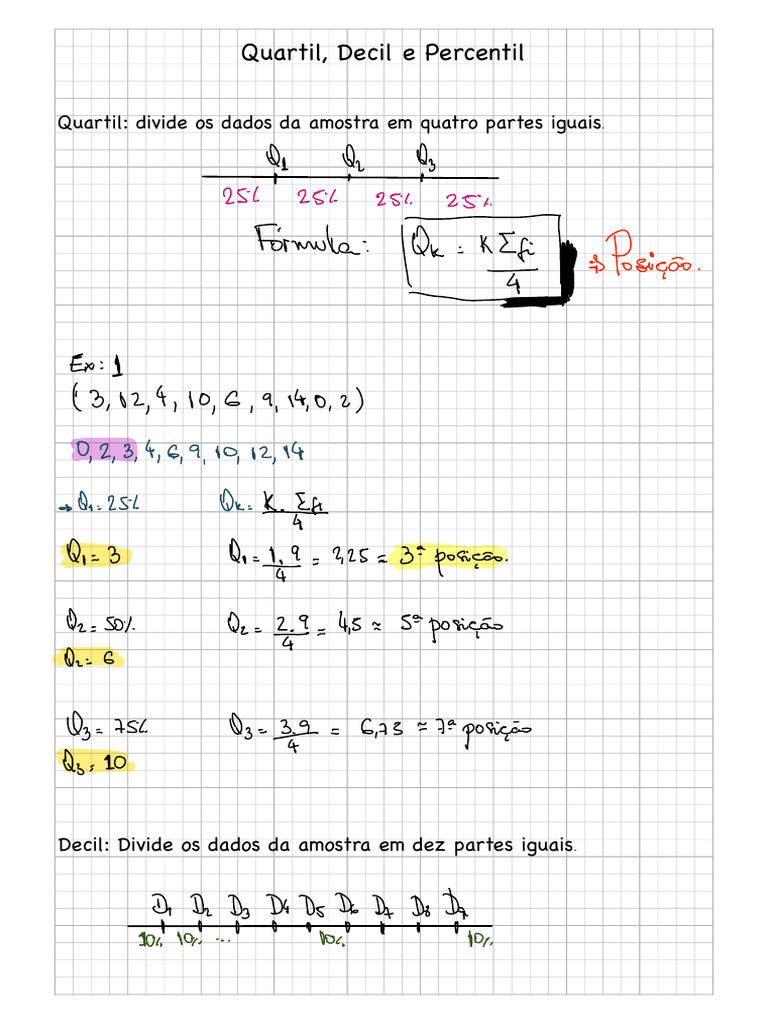 Quartil, Decil e Percentil
Quartil: divide os dados da amostra em quatro partes iguais.
Q1 Q2 Q3
25% 25% 25% 25%
Fórmula: Qk = K Σfi / 4 ⇒ Posição.
Ex: 1
(3, 12, 4, 10, 6, 9, 14, 0, 2)
0, 2, 3, 4, 6, 9, 10, 12, 14
→ Q1 = 25% Qk = K. Σfi / 4
Q1 = 3 Q1 = 1.9 / 4 = 2,25 ≈ 3ª posição.
Q2 = 50% Q2 = 2.9 / 4 = 4,5 ≈ 5ª posição
Q2 = 6
Q3 = 75% Q3 = 3.9 / 4 = 6,73 ≈ 7ª posição
Q3 = 10
Decil: Divide os dados da amostra em dez partes iguais.
D1 D2 D3 D4 D5 D6 D7 D8 D9
10% 10% ... 10% 10%